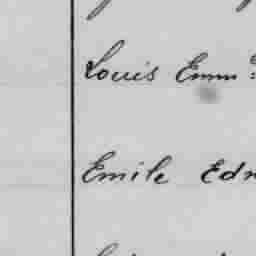 Louis Emm
Emile Edm